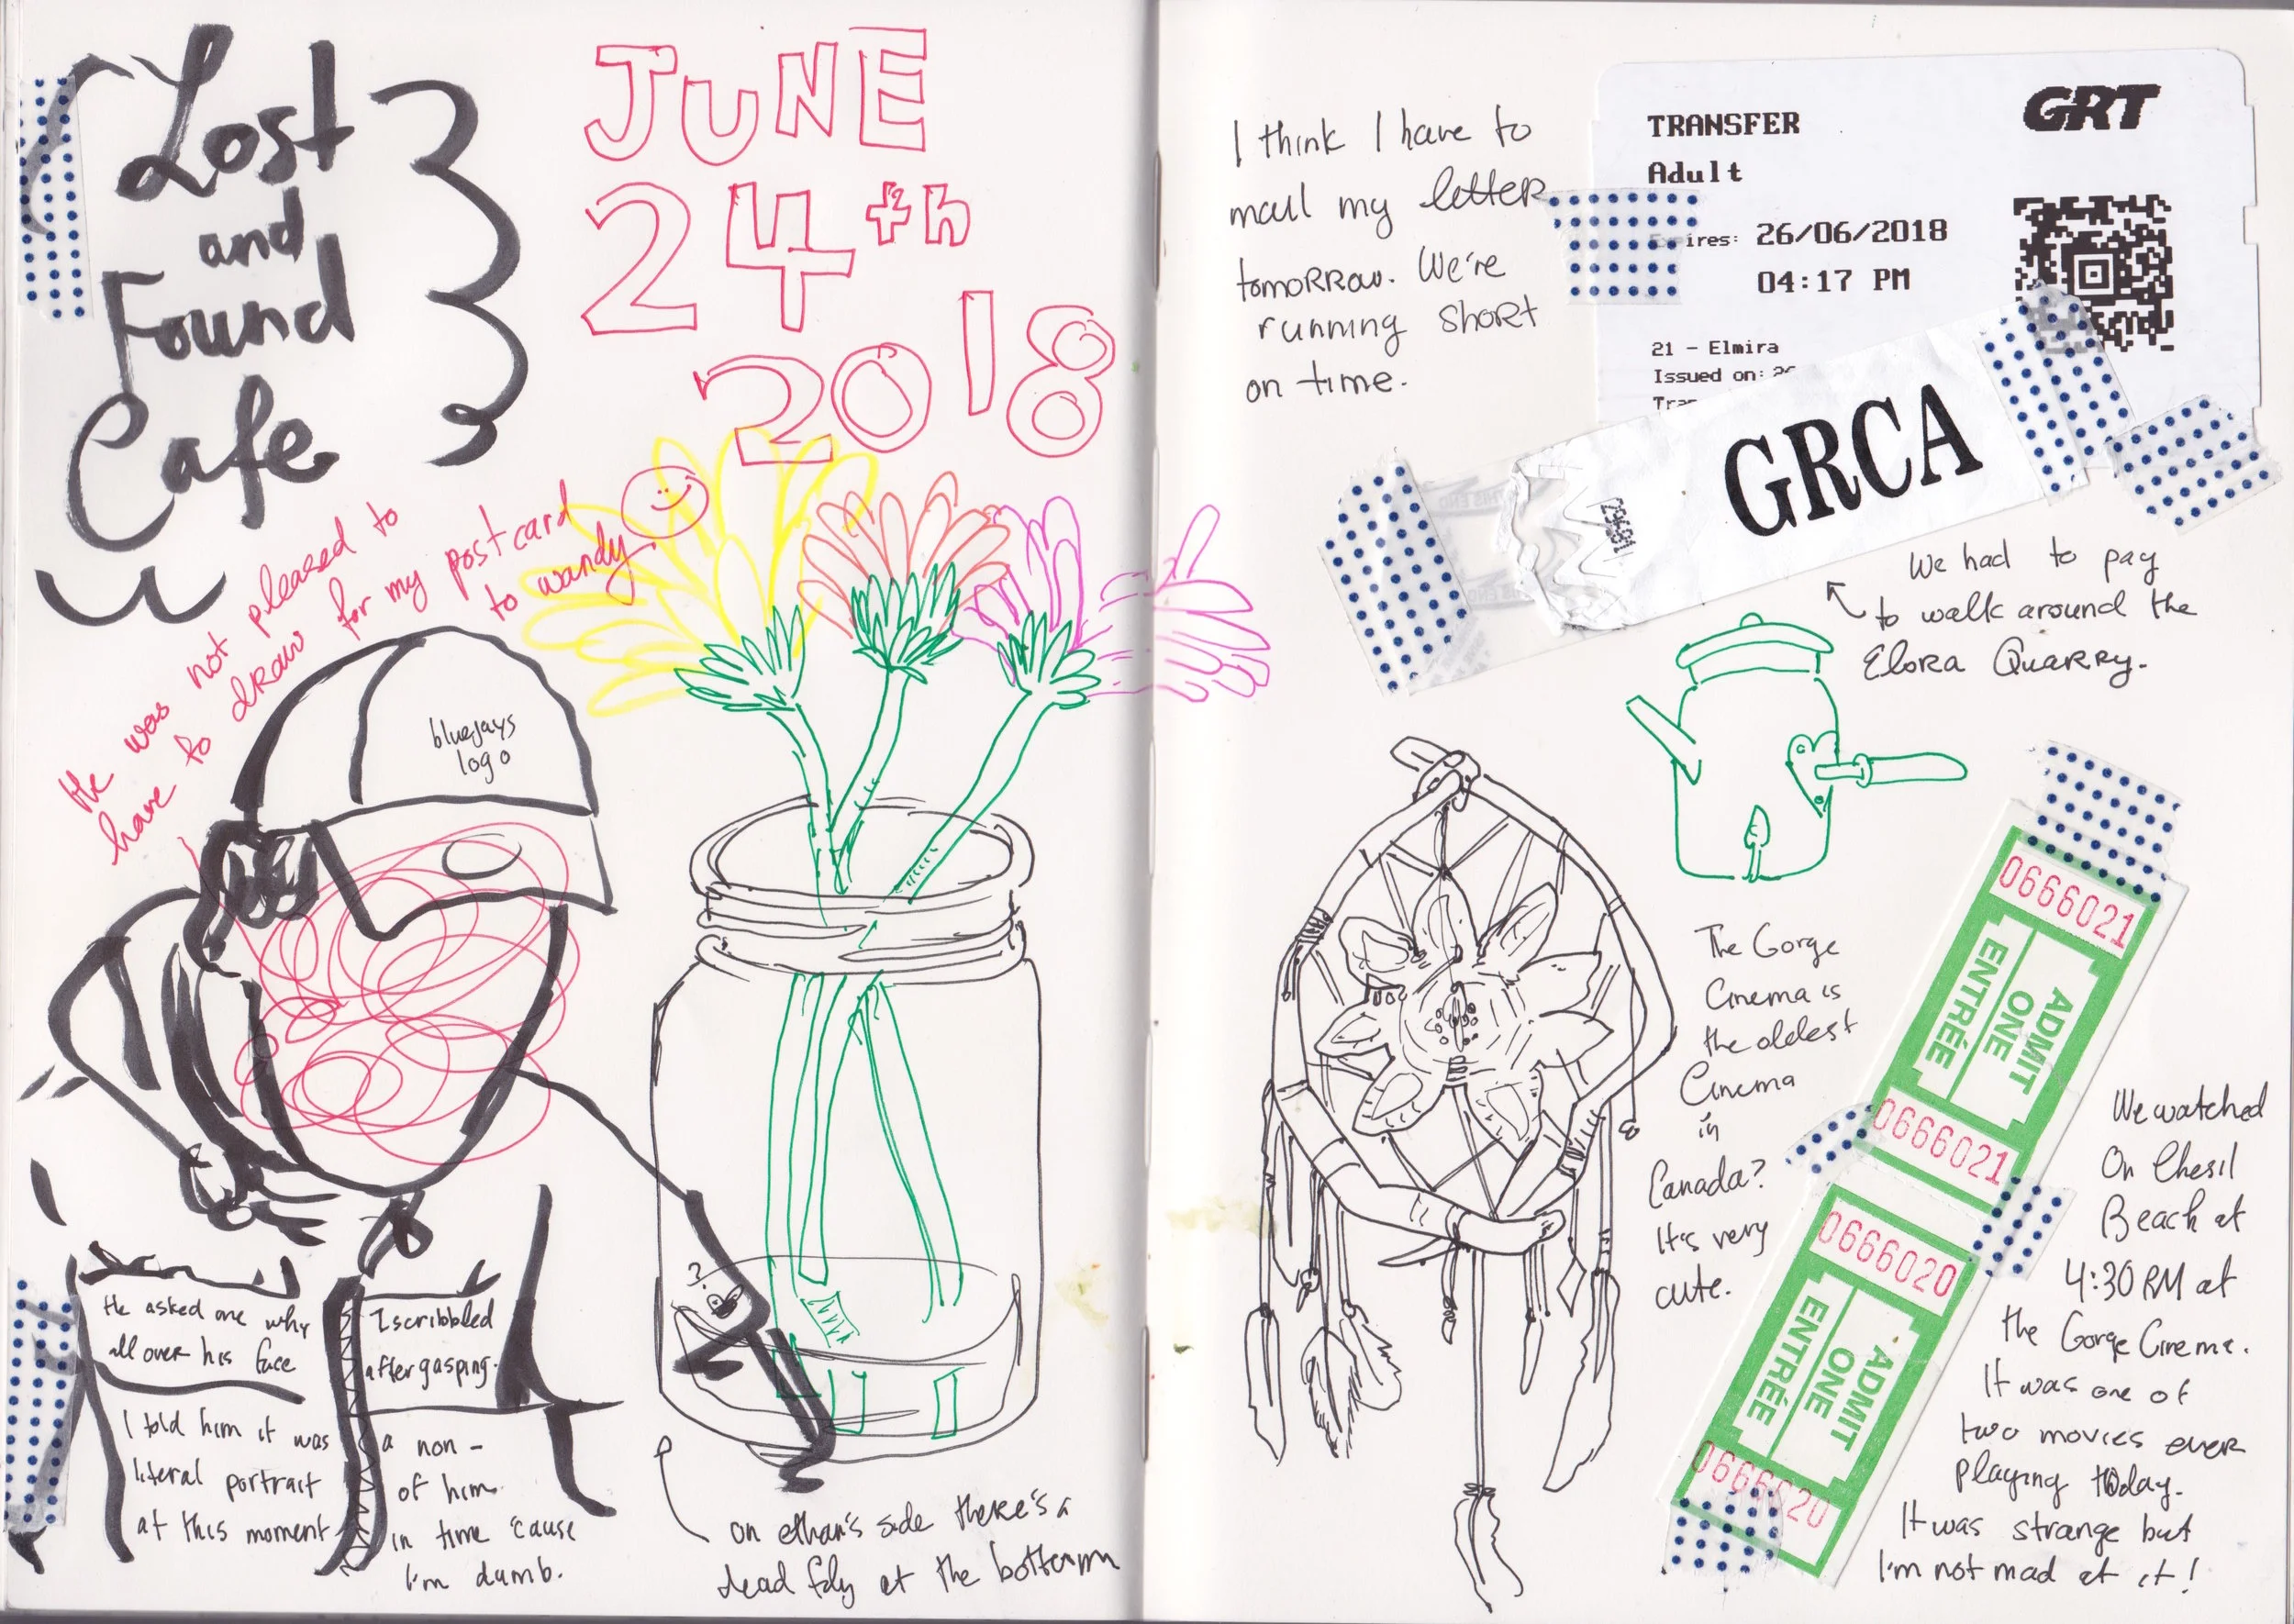 Lost
and
Found
Cafe
JUNE
24th
2018
He was not pleased to
have to draw for my postcard
to wandy
bluejays
logo
He asked me why
all over his face
I scribbled
after gasping.
I told him it was a non-
literal portrait of him
at this moment in time 'cause
I'm dumb.
?
on ethan's side there's a
dead fly at the bottom
I think I have to
mail my letter
tomorrow. We're
running short
on time.
GRT
TRANSFER
Adult
ires: 26/06/2018
04:17 PM
21 - Elmira
Issued on:
GRCA
We had to pay
to walk around the
Elora Quarry.
The Gorge
Cinema is
the oldest
Cinema
in
Canada?
It's very
cute.
0666021
ADMIT
ONE
ENTRÉE
0666021
0666020
ADMIT
ONE
ENTRÉE
0666020
We watched
On Chesil
Beach at
4:30 PM at
the Gorge Cinema.
It was one of
two movies ever
playing today.
It was strange but
I'm not mad at it!